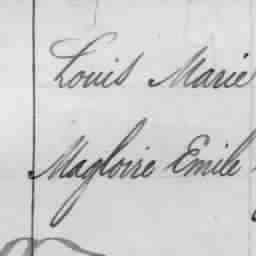 Louis Marie
Magloire Emile